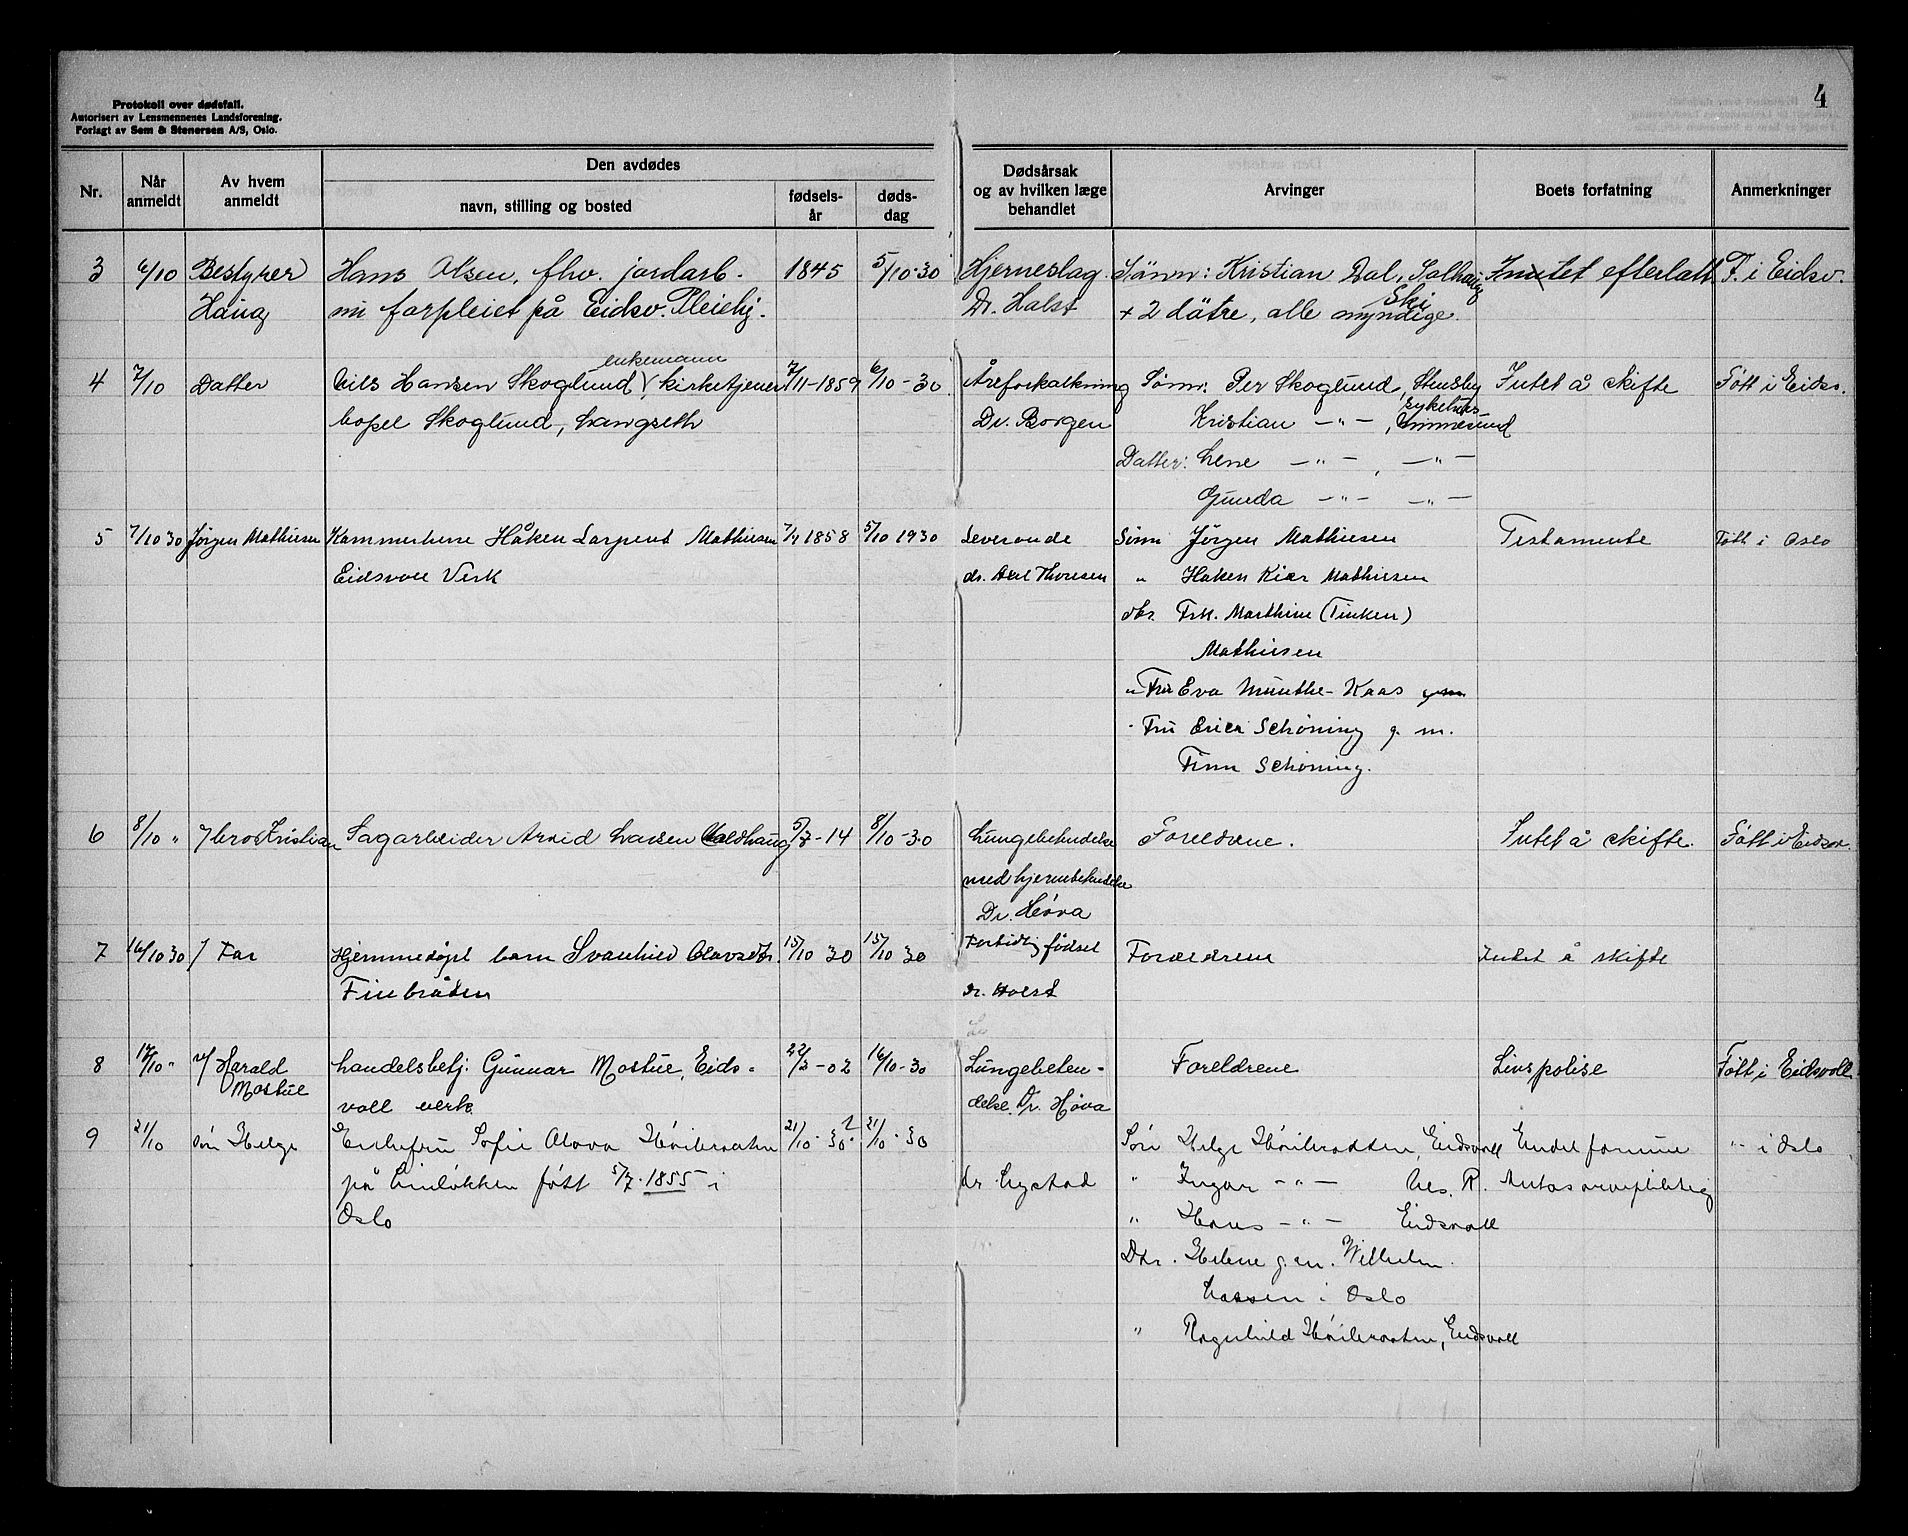 4
Protokoll over dødsfall.
Autorisert av Lensmennenes Landsforening.
Forlagt av Sem & Stenersen A/S, Oslo.
Nr.
Når anmeldt
Av hvem anmeldt
Den avdødes
navn, stilling og bosted
fødsels-år
døds-dag
Dødsårsak og av hvilken læge behandlet
Arvinger
Boets forfatning
Anmerkninger
3 6/10 Bestyrer Hans Olsen, fhv. jordarb. 1845 5/10-30 Hjerneslag. Sönn: Kristian Dal, Solhaug Intet efterlatt. F. i Eidsv.
Haug nu forpleiet på Eidsv. Pleiehj. Dr. Holst + 2 dötre, alle myndige. Ski
enkemann
4 7/10 Datter Nils Hansen Skoglund, kirketjener 7/11-1859 6/10-30. Åreforkalkning Sönn: Per Skoglund, Stensby Intet å skifte Født i Eidsv.
bopel Skoglund, Langseth Dr. Borgen Kristian -"-, sykehus
Datter: Lene -"-, -"-
Gunda -"- -"-
5 7/10 30 Jørgen Mathiesen Kammerherre Håken Larpent Mathiesen 7/4 1858 5/10 1930 Sønn Jørgen Mathiesen Testamente Født i Oslo
Eidsvoll Verk dr. Axel Thoresen " Haken Kiær Mathiesen
dtr. Frk. Marthine (Tinken)
Mathiesen
" Fru Eva Munthe-Kaas gm
" Fru Erica Schöning g. m.
Finn Schöning.
6 8/10 " / bror Kristian Sagarbeider Arvid Larsen 5/7-14 8/10-30 Lungebetendelse Foreldrene. Intet å skifte. Født i Eidsv.
med hjernebetendelse
Dr. Høva
7 16/10 30 / Far Hjemmedøpt barn Svanhild Olavsdtr. 15/10 30 15/10 30 Fortidlig födsel Foreldrene Intet å skifte
Finbråten dr. Holst
8 17/10 " v/ Harald Handelsbetj. Gunnar Mostue, Eids- 22/3-02 16/10-30 Lungebeten- Foreldrene Livspolise Født i Eidsvoll.
Mostue voll verk delse. Dr. Høva
9 21/10 sön Helge Enkefru Sofie Olava Höibraaten 21/10-30? 21/10-30 Sön Helge Höibraaten, Eidsvoll Endel formue " i Oslo
på födt 5/7-1855 i dr. Lystad " Ingvar -"- Nes. R. Antas arvepliktig
Oslo " Hans -"- Eidsvoll
Dtr. Helene g. m. Wilhelm
Larsen i Oslo
" Ragnhild Höibraaten, Eidsvoll